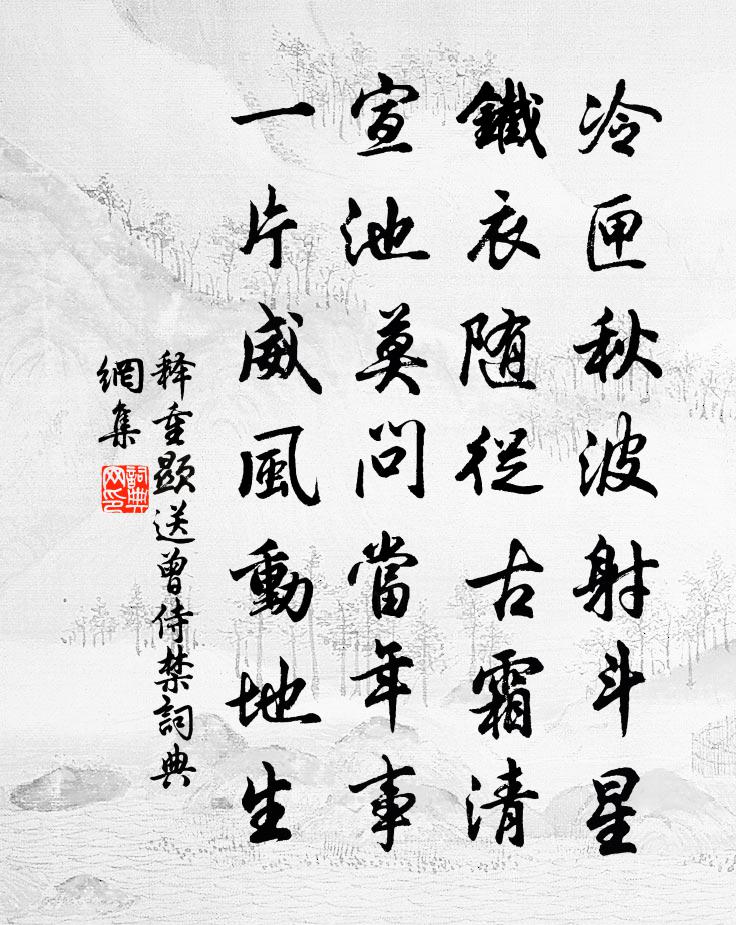 冷匣秋波射斗星
鐵衣随從古霜清
宣池莫問當年事
一片威風動地生
释重顯送曾侍禁詞典
網集
詞典
网印